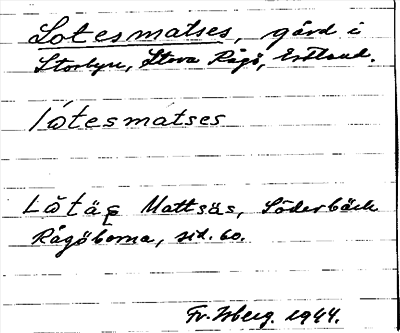 Lotesmatses, gård i
Storbyn, Stora Rågö, Estland.
lòtesmatses
Lŏtäs Mattsäs, Söderbäck
Rågöborna, sid. 60.
Fr. Isberg 1944.